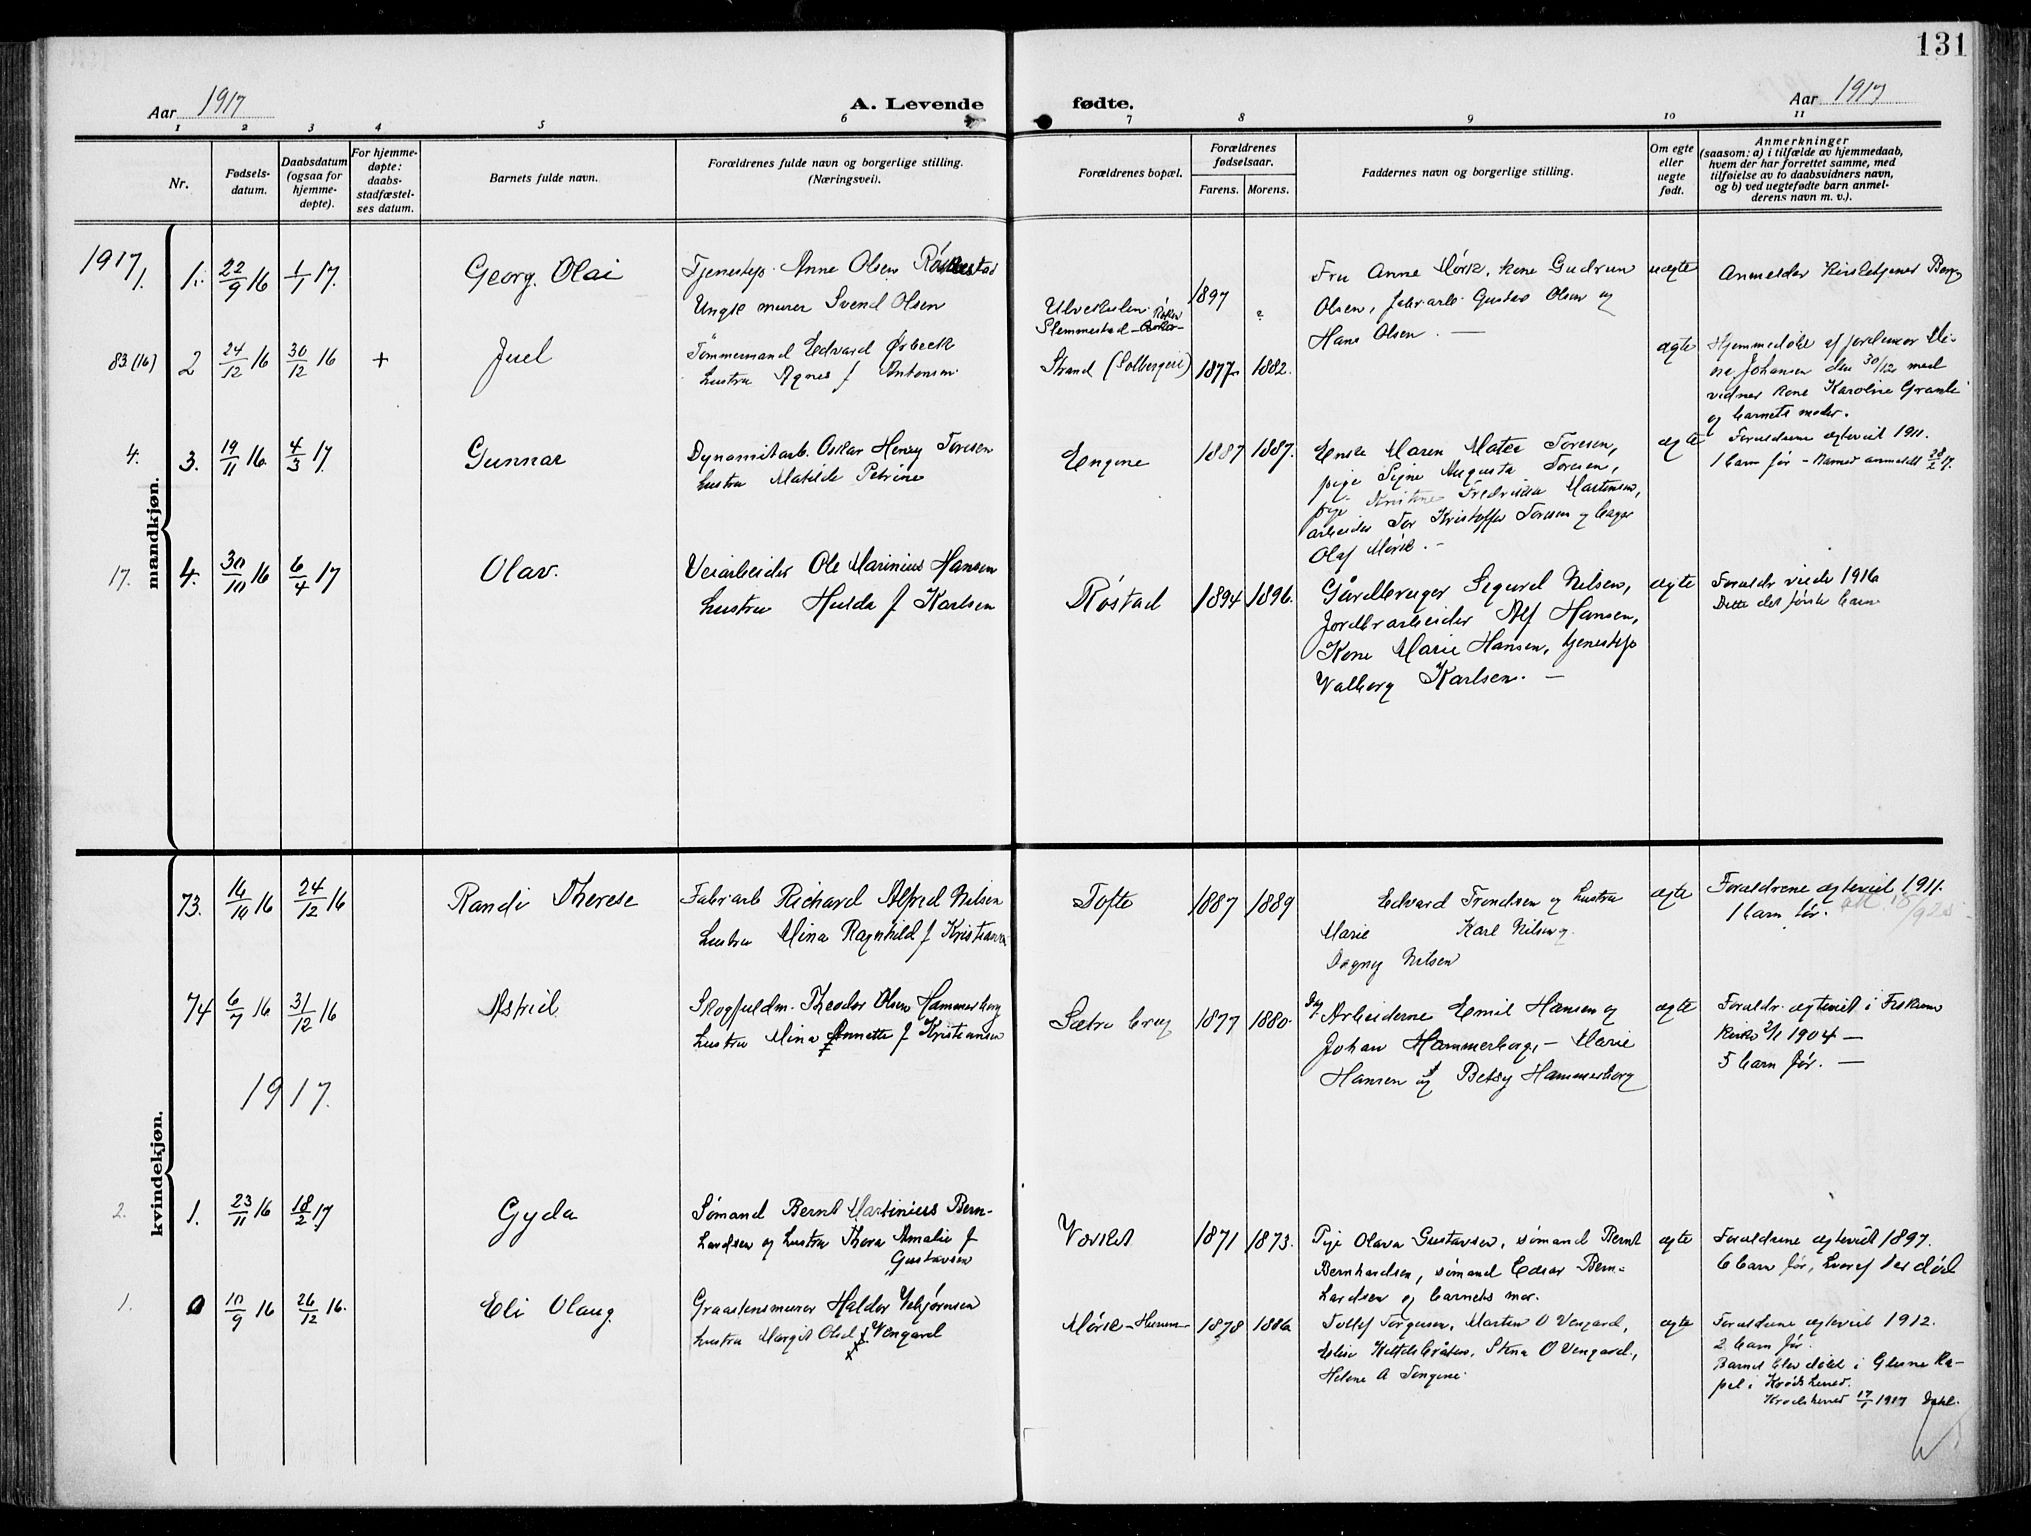 131
Aar 1917
A. Levende
fødte.
Aar 1917
1 2 3 4 5 6 7 8 9 10 11
Nr.
Fødsels-
datum.
Daabsdatum
(ogsaa for
hjemme-
døpte).
For hjemme-
døpte:
daabs-
stadfæstel-
ses datum.
Barnets fulde navn.
Forældrenes fulde navn og borgerlige stilling.
(Næringsvei).
Forældrenes bopæl.
Forældrenes
fødselsaar.
Farens. Morens.
Faddernes navn og borgerlige stilling.
Om egte
eller
uegte
født.
Anmerkninger
(saasom: a) i tilfælde av hjemmedaab,
hvem der har forrettet samme, med
tilføielse av to daabsvidners navn,
og b) ved uegtefødte barn anmel-
derens navn m. v.).
mandkjøn.
1917
1. 1. 22/9 16 1/1 17. Georg. Olai
Tjenestep. Anne Olsen
Ungk murer Svend Olsen
Slemmestad
1897
Fru Anne Mørk, kone Gudrun
Olsen, fabr.arb. Gustav Olsen og
Hans Olsen. —
uægte
Anmelder Kirketjener Berg
83 (16) 2 24/12 16 30/12 16 + Juel
Tømmermand Edvard Ørbeck
hustru Agnes f Antonsen
Strand (Solbergeie) 1877 1882.
ægte
Hjemmedøbt af jordemor
Johansen den 30/12 med
vidner kone Karoline Granli
og barnets moder.
4. 3. 19/11 16. 4/3 17. Gunnar
Dynamitarb. Oskar Henry Toresen
hustru Matilde Petrine
Engene 1887 1887.
Enke Maren Mater Toresen,
pige Signe Augusta Toresen,
pige Kristine Fredrikka Martensen,
arbeider Tor Kristoffer Toresen og bager
Olaf Mørk. —
ægte
Forældrene ægteviet 1911.
1 barn før — Barnet anmeldt 28/2 17.
17. 4. 30/10 16 6/4 17 Olav.
Veiarbeider Ole Marinius Hansen
hustru Hulda f Karlsen
Røstad 1894 1896.
Gårdbruger Sigurd Nilsen,
Jordbrarbeider Alf Hansen,
Kone Marie Hansen, tjenestep
Valborg Karlsen. —
ægte
Forældr viede 1916
Dette det første barn
kvindekjøn.
73. 16/10 16 24/12 16 Randi Therese
Fabr arb Richard Alfred Nilsen
hustru Mina Ragnhild f Kristiansen
Tofte 1887 1889
Edvard Trondsen og hustru
Marie Karl Nilsen og
Dagny Nilsen
ægte
Forældrene ægteviet 1911.
1 barn før.
74 6/7 16 31/12 16 Astrid
Skogfuldm. Theodor Olsen Hammerborg
hustru Mina Annette f Kristiansen
Sætre brug 1877 1880.
Arbeiderne Emil Hansen og
Johan Hammerborg, — Marie
Hansen og Betsy Hammerborg
ægte
Forældr. ægteviet i Fiskum
Kirke 2/1 1904 —
5 barn før. —
1917.
2. 1. 23/11 16 18/2 17 Gyda
Sømand Bernt Martinius Bern-
hardsen og hustru Thora Amalie f
Gustavsen
Værket 1871 1873.
Pige Olava Gustavsen, sømand Bernt
Bernhardsen, sømand Edvar Bern-
hardsen og barnets mor.
ægte
Forældrene ægteviet 1897.
6 barn før, hvoraf 1 er død
1. 0 10/9 16 26/12 16. Eli Olaug.
Graastensmurer Haldor Vebjørnsen
hustru Margit Olsd Vengard
Mørk — Hurum 1878 1886
Tollef Torgersen, Marten O Vengard,
Stina O Vengard,
Helene A Tengene.
ægte
Forældrene ægteviet 1912.
2 barn før.
Barnet blev døbt i Glesne Ka-
pel i Krødsherred.
Krødsherred 17/1 1917 Dahl.